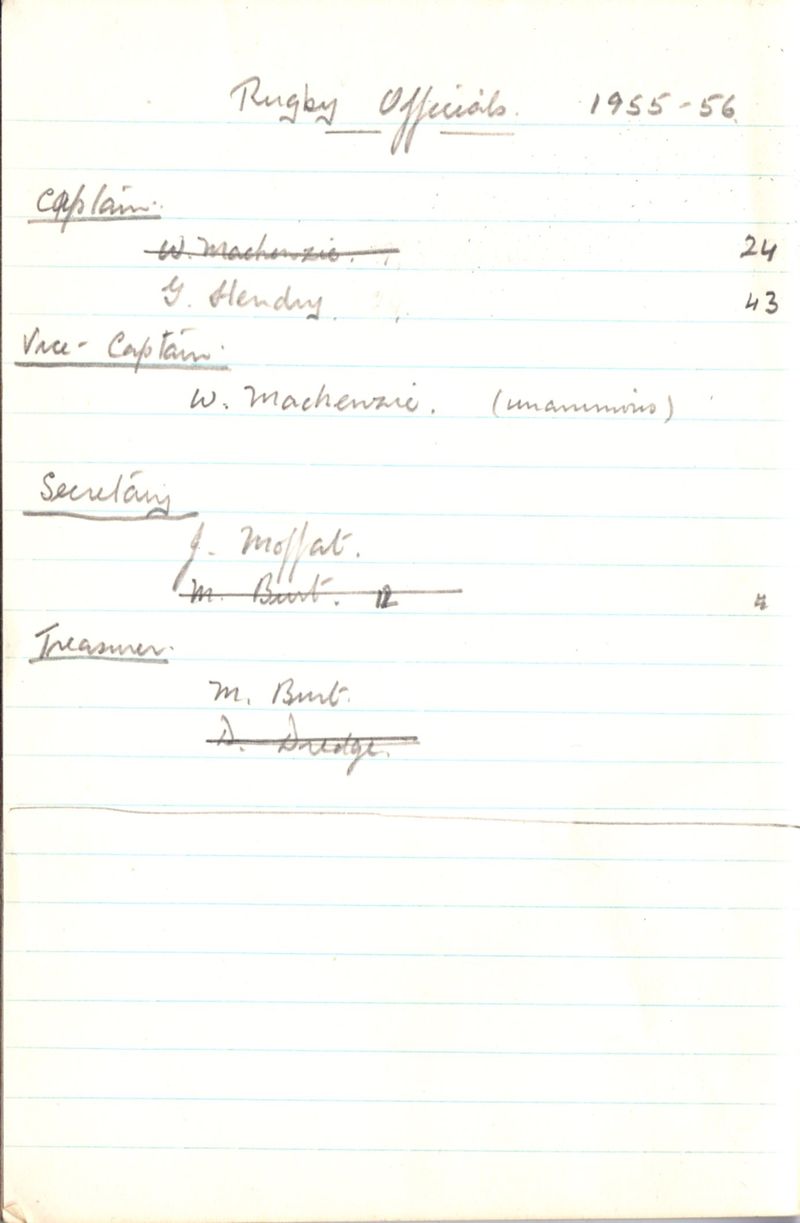 Rugby Officials. 1955-56
Captain.
W. Mackenzie. 24
G. Hendry. 43
Vice-Captain.
W. Mackenzie. (unanimous)
Secretary
J. Moffat.
M. Burt. 12 4
Treasurer.
M. Burt.
D. Dredge.